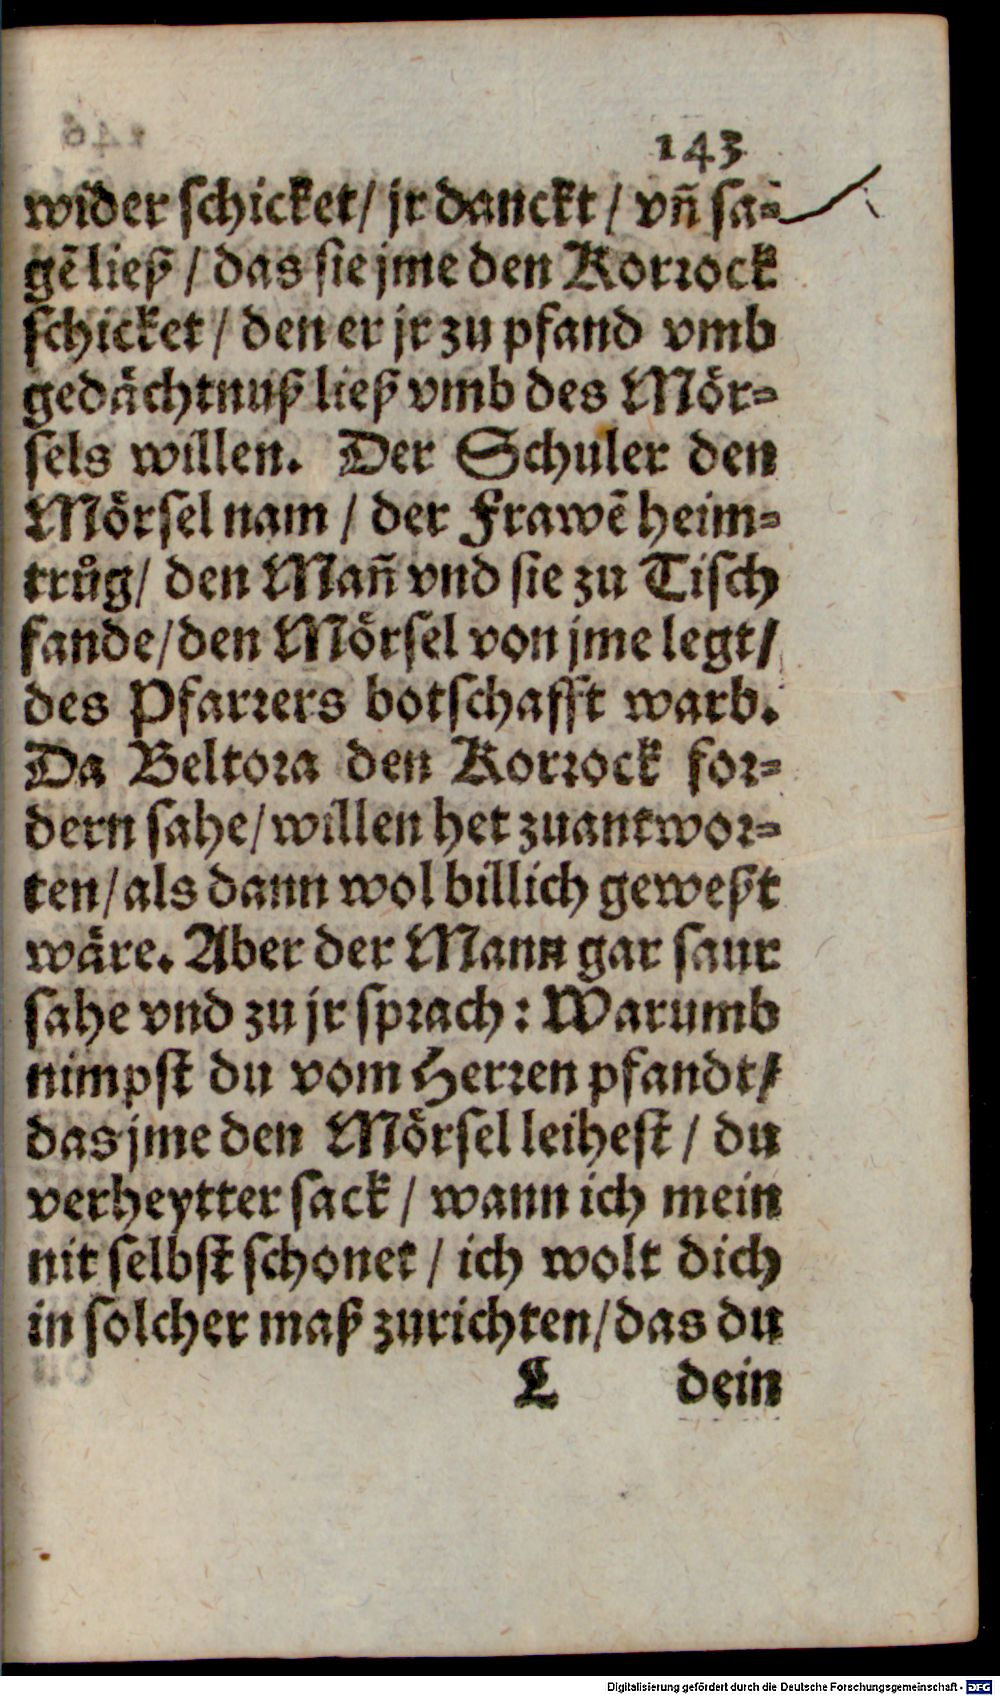 143
wider schicket/ jr danckt / vñ sa-
gẽ ließ / das sie jme den Korrock
schicket / den er jr zu pfand vmb
gedächtnuß ließ vmb des Mör-
sels willen. Der Schuler den
Mörsel nam / der Frawẽ heim-
trůg/ den Mañ vnd sie zu Tisch
fande/ den Mörsel von jme legt/
des Pfarrers botschafft warb.
Da Beltora den Korrock for-
dern sahe/ willen het zuantwor-
ten/ als dann wol billich geweßt
wäre. Aber der Mann gar saur
sahe vnd zu jr sprach: Warumb
nimpst du vom Herren pfandt/
das jme den Mörsel leihest / du
verheytter sack / wann ich mein
nit selbst schonet / ich wolt dich
in solcher maß zurichten/ das du
L dein
Digitalisierung gefördert durch die Deutsche Forschungsgemeinschaft - DFG